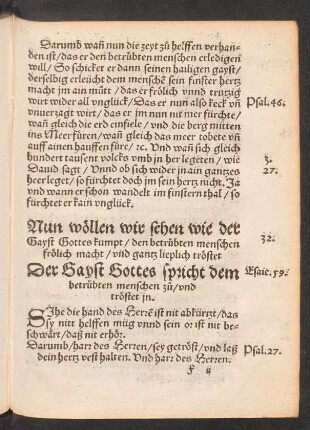 Darumb wañ nun die zeyt zů helffen verhan-
den ist/das er den betrübten menschen erledigen
will/ So schicket er dann seinen hailigen gayst/
derselbig erleücht dem menschẽ sein finster hertz
macht jm ain mütt / das er frölich vnnd trutzig
wirt wider all vnglück/ Das er nun also keck vñ
vnuerzagt wirt/ das er jm nun nit mer fürchte/
wañ gleich die erd einfiele / vnd die berg mitten
ins Meer füren/ wañ gleich das meer tobete vñ
auff ainen hauffen füre/ ꝛc. Vnd wañ sich gleich
hundert tausent volcks vmb jn her legeten / wie
Dauid sagt / Vnnd ob sich wider jn ain gantzes
heer leget/ so fürchtet doch jm sein hertz nicht. Ja
vnd wann er schon wandelt im finstern thal / so
fürchtet er kain vnglück.
Psal. 46.
3.
27.
Nun wöllen wir sehen wie der
Gayst Gottes kumpt / den betrübten menschen
frölich macht/ vnd gantz lieplich tröstet
32.
Der Gayst Gottes spricht dem
betrübten menschen zů/ vnd
tröstet jn.
Esaie. 59.
SIhe die hand des Herrẽ ist nit abkürtzt/ das
sy nitt helffen müg vnnd sein or ist nit be-
schwärt/ daß nit erhör.
Darumb/ harr des Herren/ sey getröst/ vnd laß
dein hertz vest halten. Vnd harr des Herren.
Psal. 27.
ij